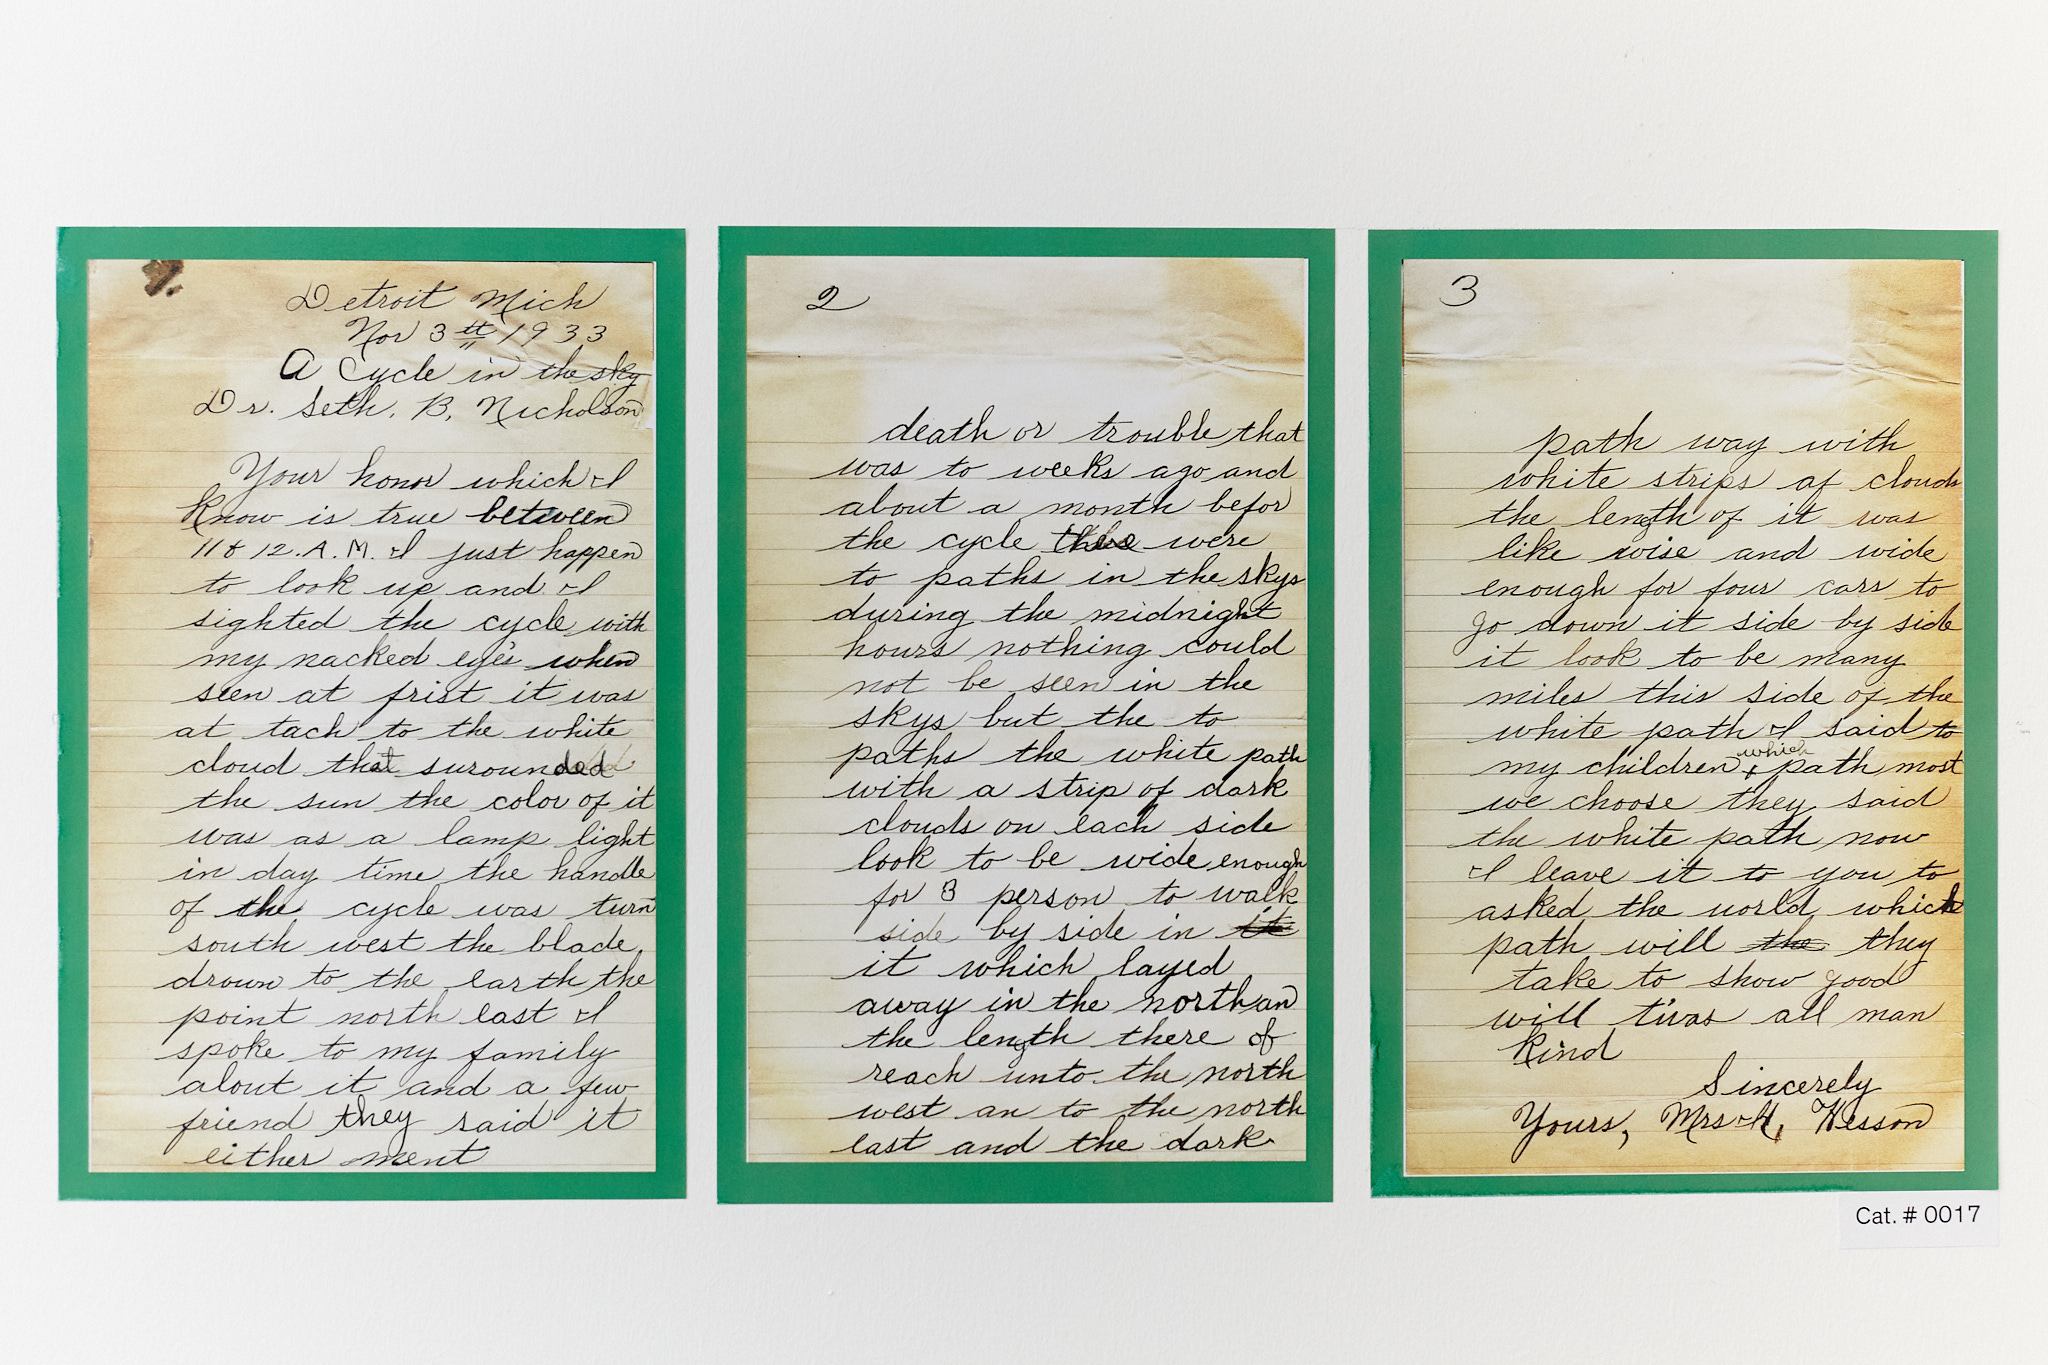 Detroit Mich
Nov 3tt 1933
A Cycle in the sky
Dr. Seth. B. Nicholson
Your honor which I
know is true between
11 & 12. A. M. I just happen
to look up and I
sighted the cycle with
my nacked eye's when
seen at frist it was
at tach to the white
cloud that surounded
the sun the color of it
was as a lamp light
in day time the handle
of the cycle was turn
south west the blade
drown to the earth the
point north east I
spoke to my family
about it and a few
friend they said it
either ment
2
death or trouble that
was to weeks ago and
about a month befor
the cycle there were
to paths in the skys
during the midnight
hours nothing could
not be seen in the
skys but the to
paths the white path
with a strip of dark
clouds on each side
look to be wide enough
for 3 person to walk
side by side in it
it which layed
away in the north an
the length there of
reach unto the north
west an to the north
east and the dark
3
path way with
white strips of clouds
the length of it was
like wise and wide
enough for four cars to
go down it side by side
it look to be many
miles this side of the
white path I said to
my children which path most
we choose they said
the white path now
I leave it to you to
asked the world which
path will the they
take to show good
will t'wars all man
kind
Sincerely
Yours, Mrs H, Wesson
Cat. # 0017